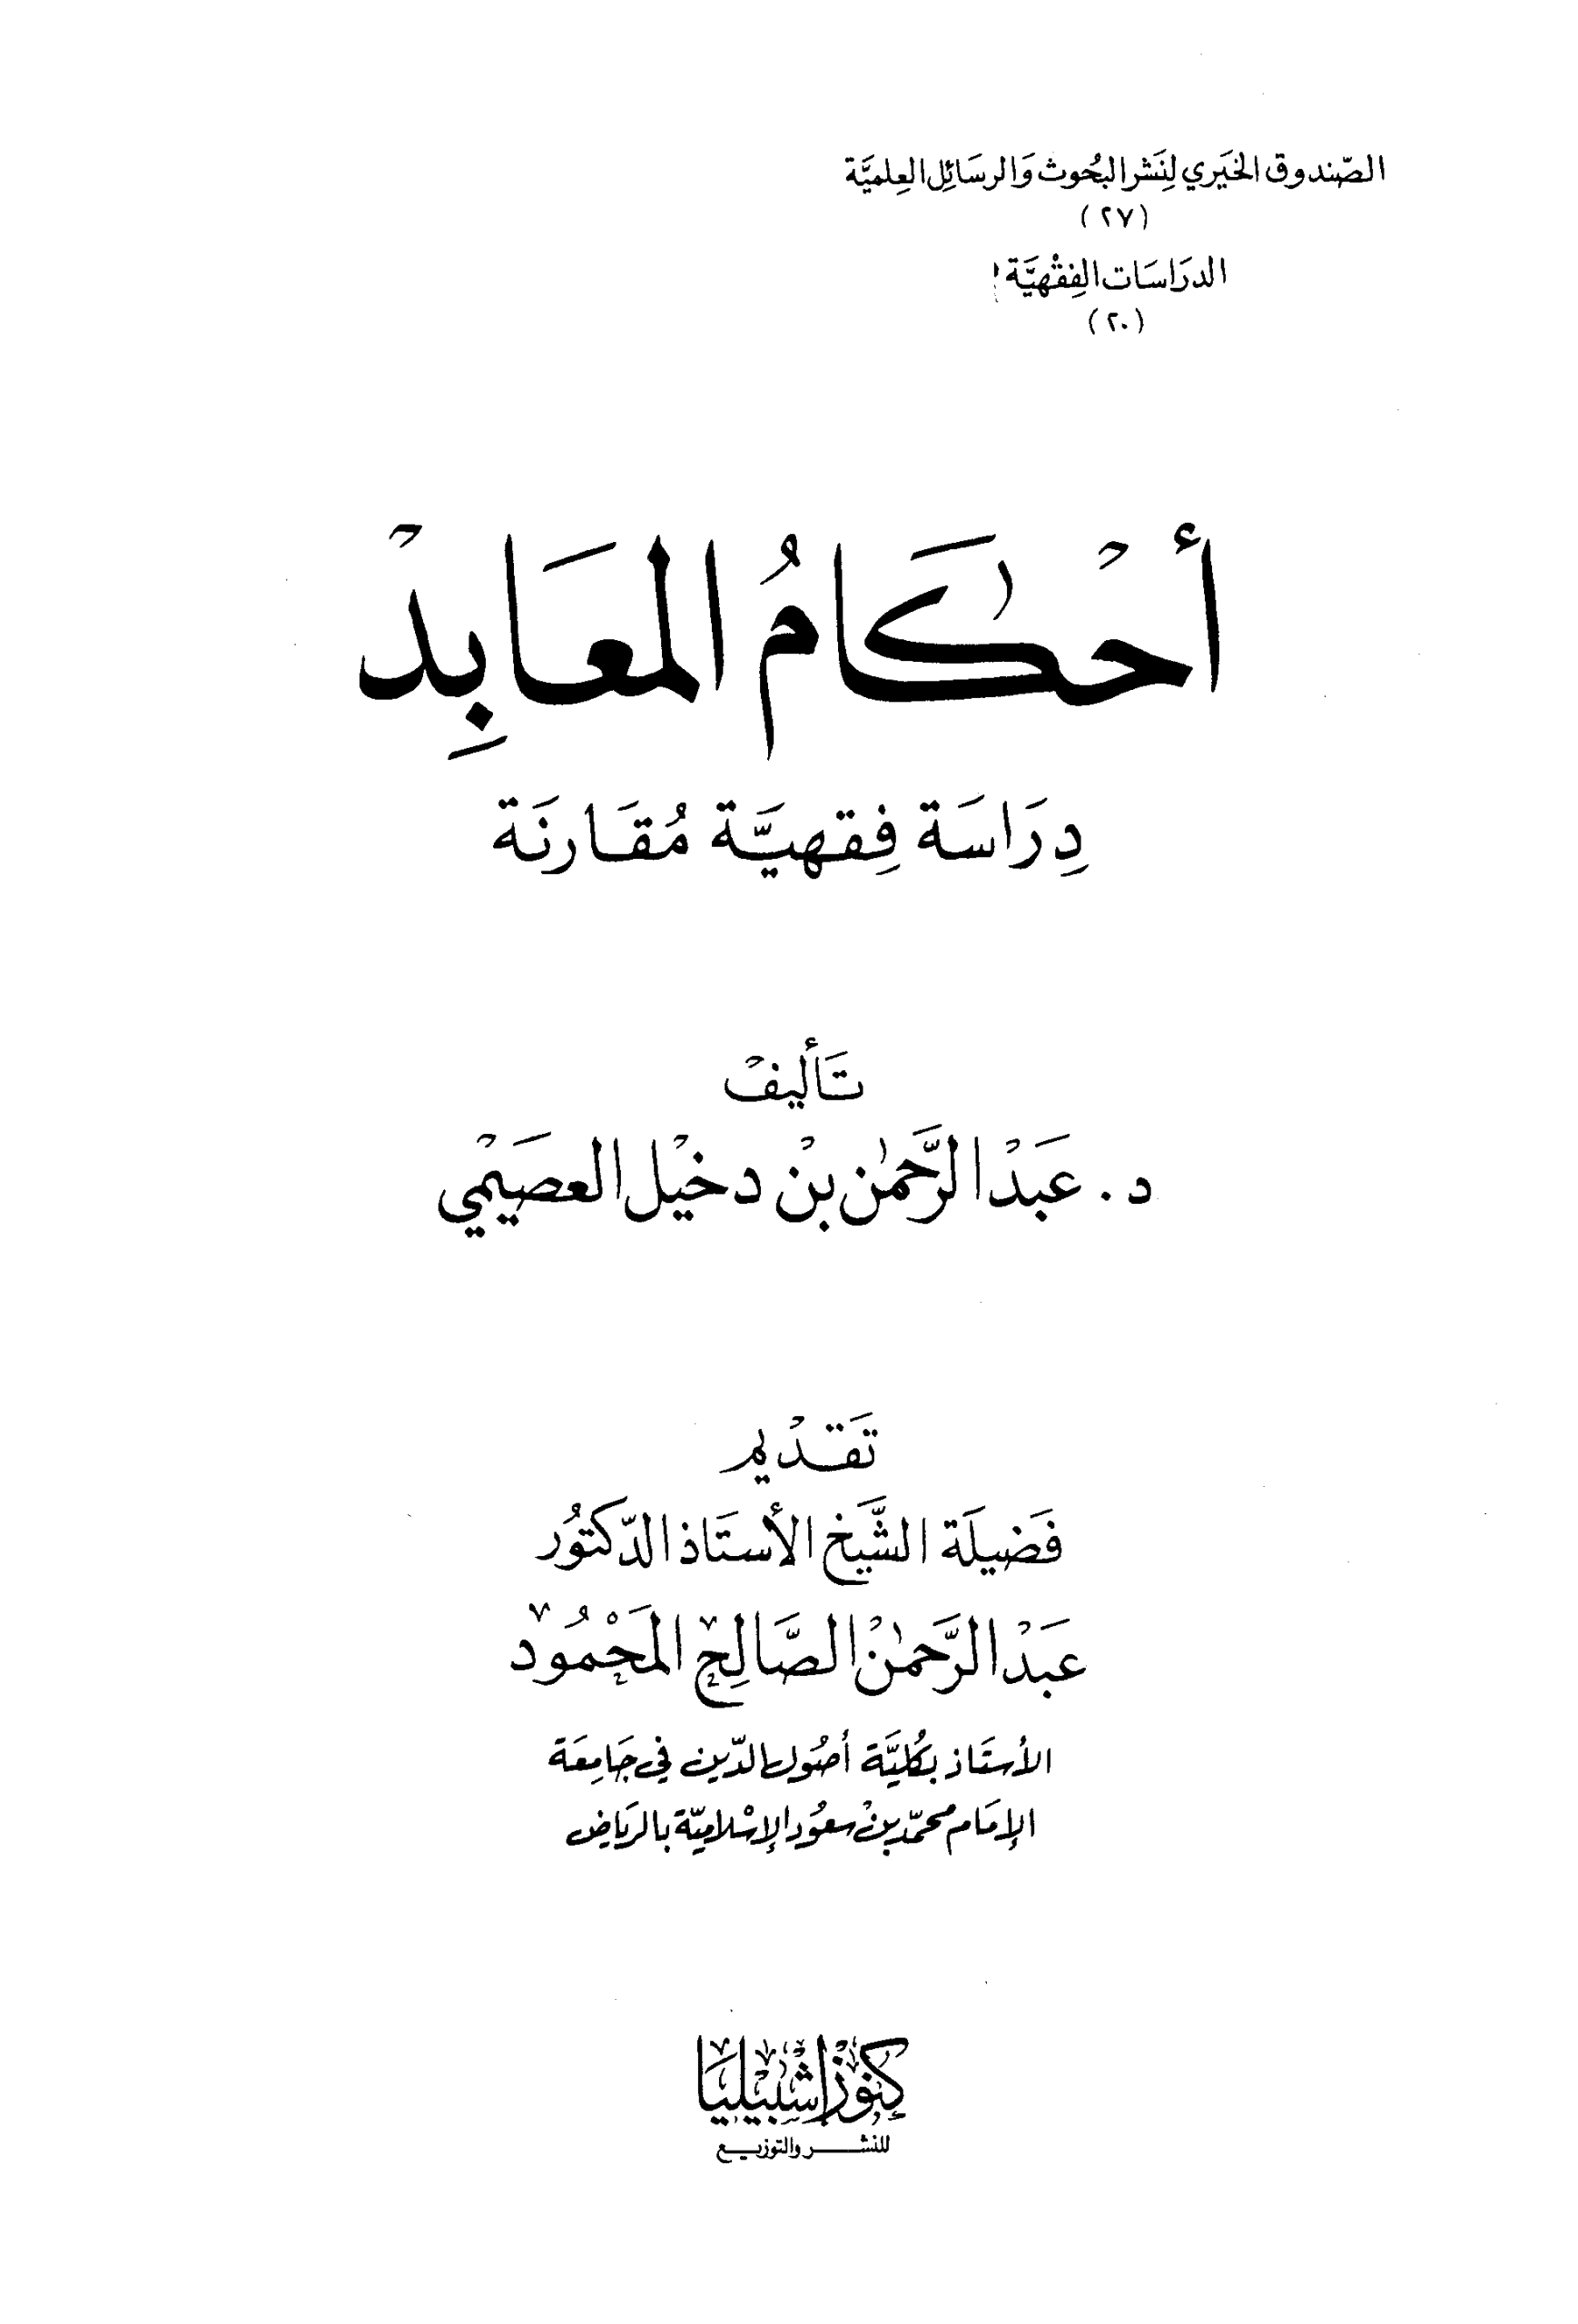 الصّندوق الخَيري لِنَشر البُحوث وَالرسَائِل العِلميَّة
(٢٧)
الدرَاسَات الفِقْهيَّة
(٢٠)
أحْكَامُ المَعَابِدْ
دِرَاسَة فِقهيَّة مُقَارنَة
تَأليفْ
د. عَبْد الرَّحمٰن بنْ دخيْل العصَيْمي
تَقدْيم
فَضيلَة الشَّيخ الأستَاذ الدّكتوُر
عَبْد الرَّحمٰنْ الصَّالِح المَحْمُود
الأستَاذ بكُليَّة أصُول الدّين في جَامِعَة
الإمَام محمّد بنْ سعوُد الإسْلاميّة بالريَاض
كنوز اشبيليا
للنشر والتوزيع